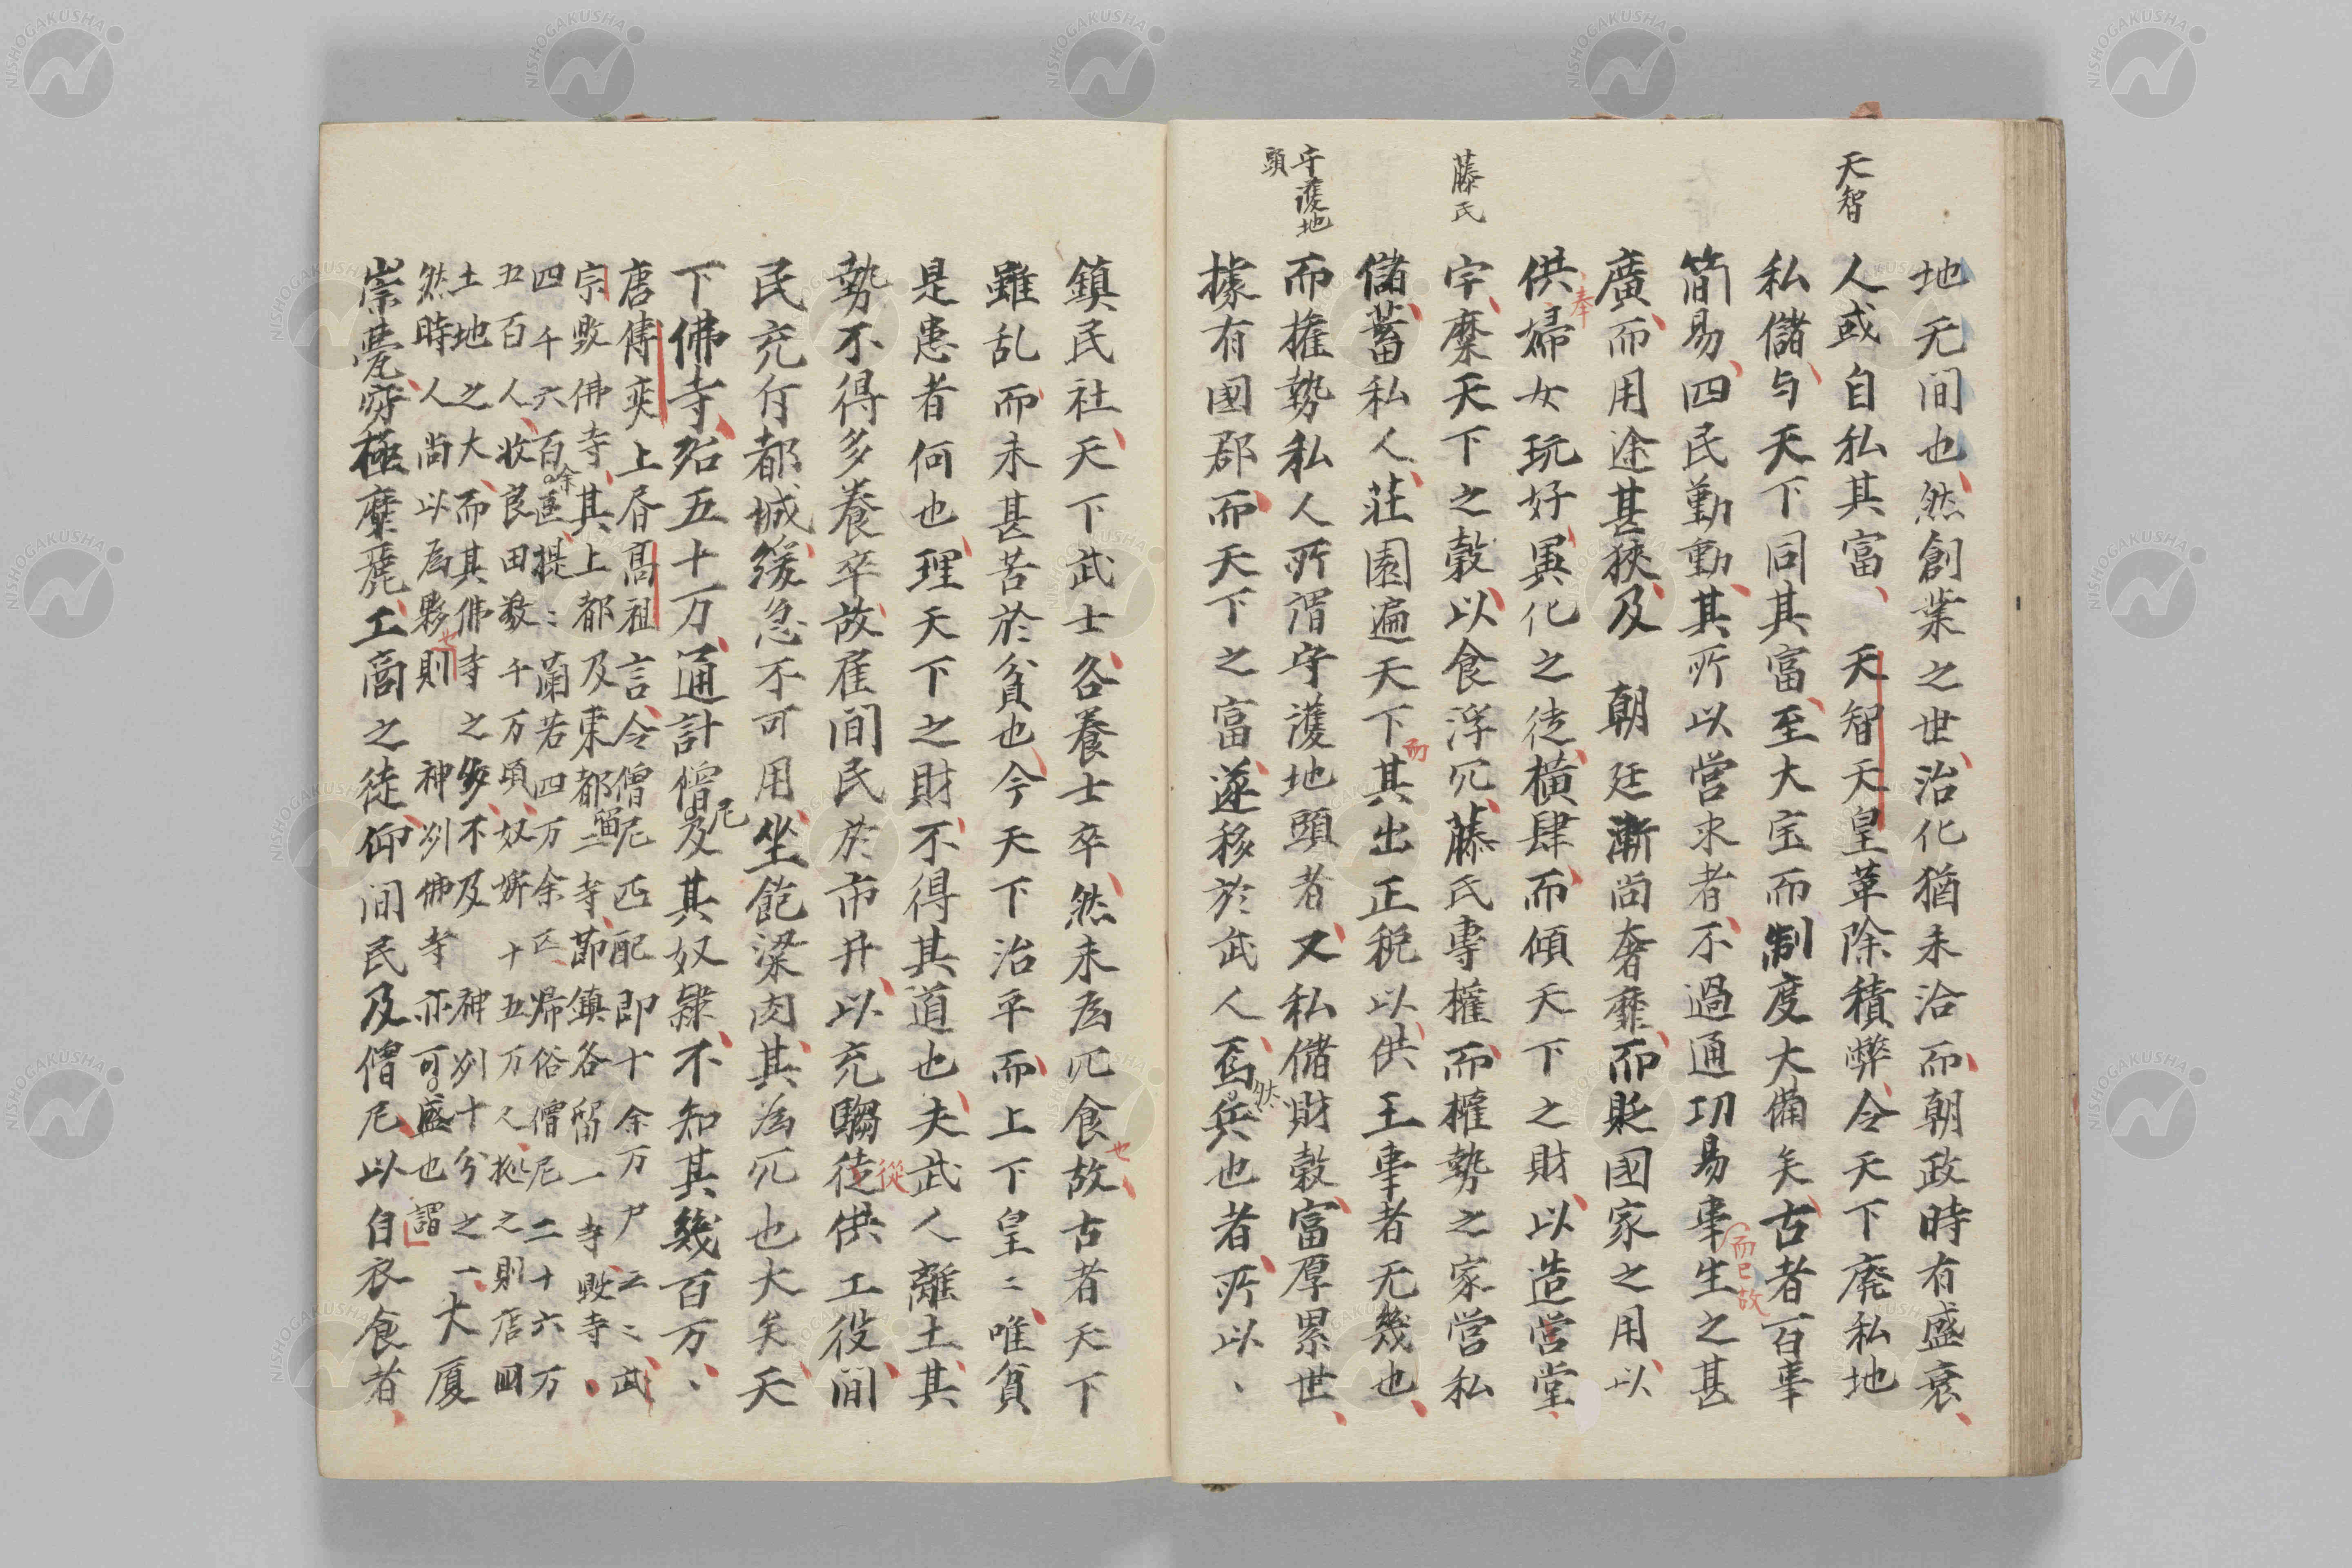 天智
藤氏
守護地
頭
地无间也然創業之世治化猶未洽而朝政時有盛衰
人或自私其富　天智天皇革除積弊令天下廃私地
私儲与天下同其富至大宝而制度大備矣古者百事
簡易四民勤動其所以営求者不過通功易事而已故生之甚
廣而用途甚狹及　朝廷漸尚奢靡而貶國家之用以
供奉婦女玩好異化之徒橫肆而傾天下之財以造営堂
宇糜天下之穀以食浮冗藤氏專權而權勢之家営私
儲蓄私人莊園遍天下而其出正税以供王事者无幾也
而擁勢私人所謂守護地頭者又私儲財穀富厚累世
據有國郡而天下之富遂移於武人焉然兵也者所以
鎮民社天下武士各養士卒然未為冗食也故古者天下
雖乱而未甚苦於貧也今天下治平而上下皇〻唯貧
是患者何也理天下之財不得其道也夫武人離土其
勢不得多養卒故雇间民於市井以充騶從供工役间
民充斥都城緩急不可用坐飽粱肉其為冗也大矣天
下佛寺殆五十万通計僧尼及其奴隷不知其幾百万
唐傅奕上唐高祖言令僧尼匹配即十余万戸云〻武
宗毀佛寺其上都及東都留二寺節鎮各留一寺毀寺
四千六百余區提〻蘭若四万余区帰俗僧尼二十六万
五百人收良田數千万頃奴婢十五万人拠之則唐田
土地之大而其佛寺之多不及神州十分之一
然時人尚以為夥也則神州佛寺亦可謂盛也　大厦
崇甍窮極糜麗工商之徒仰间民及僧尼以自衣食者